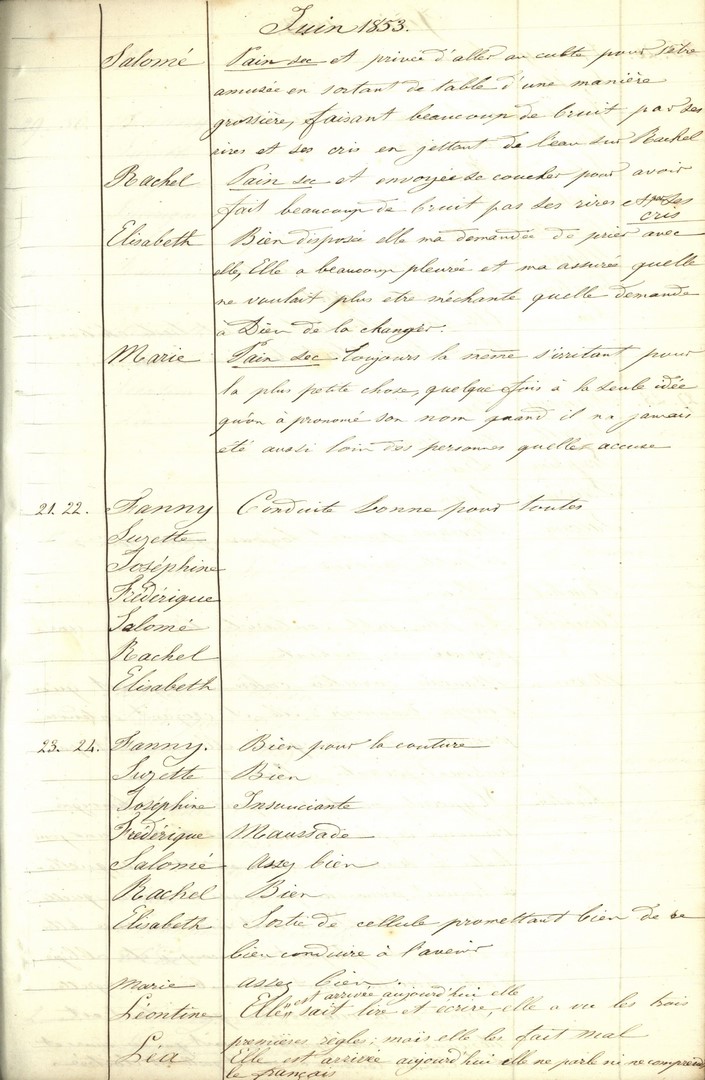 Juin 1853.
Salomé Pain sec et privée d'aller au culte pour s'être
amusée en sortant de table d'une manière
grossière, faisant beaucoup de bruit par ses
rires et ses cris en jettant de l'eau sur Rachel
Rachel Pain sec et envoyée se coucher pour avoir
fait beaucoup de bruit pas ses rires et par ses
cris
Elisabeth Bien disposée elle ma demandée de prier avec
elle, Elle a beaucoup pleurée et ma assurée quelle
ne voulait plus etre méchante quelle demande
à Dieu de la changer.
Marie Pain sec toujours la même s'irritant pour
la plus petite chose, quelque fois à la seule idée
qu'on à pronomé son nom quand il na jamais
été aussi loin des personnes quelle accuse
21. 22. Fanny Conduite bonne pour toutes
Suzette
Joséphine
Frédérique
Salomé
Rachel
Elisabeth
23. 24. Fanny. Bien pour la couture
Suzette Bien
Joséphine Insouciante
Frédérique Maussade
Salomé assez bien
Rachel Bien
Elisabeth Sortie de cellule promettant bien de se
bien conduire à l'avenir
Marie assez bien.
est arrivée aujourd'hui elle
Léontine Elle sait lire et ecrire, elle a vu les trois
premières règles; mais elle les fait mal
Léa Elle est arrivée aujourd'hui elle ne parle ni ne comprend
le français